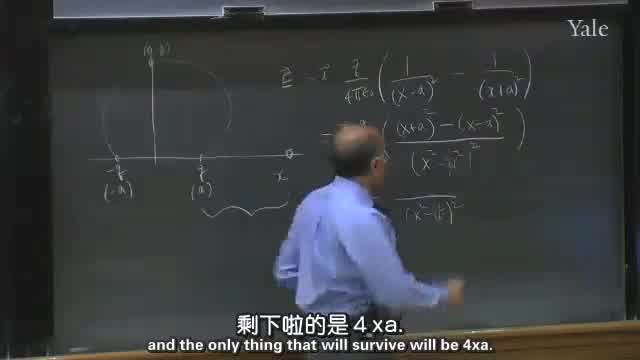 Yale
E = i q/4πε₀ ( 1/(x-a)² - 1/(x+a)² )
( (x+a)² - (x-a)² / (x² - a²)² )
-q q x
(-a) (a)
剩下啦的是 4 xa.
and the only thing that will survive will be 4xa.